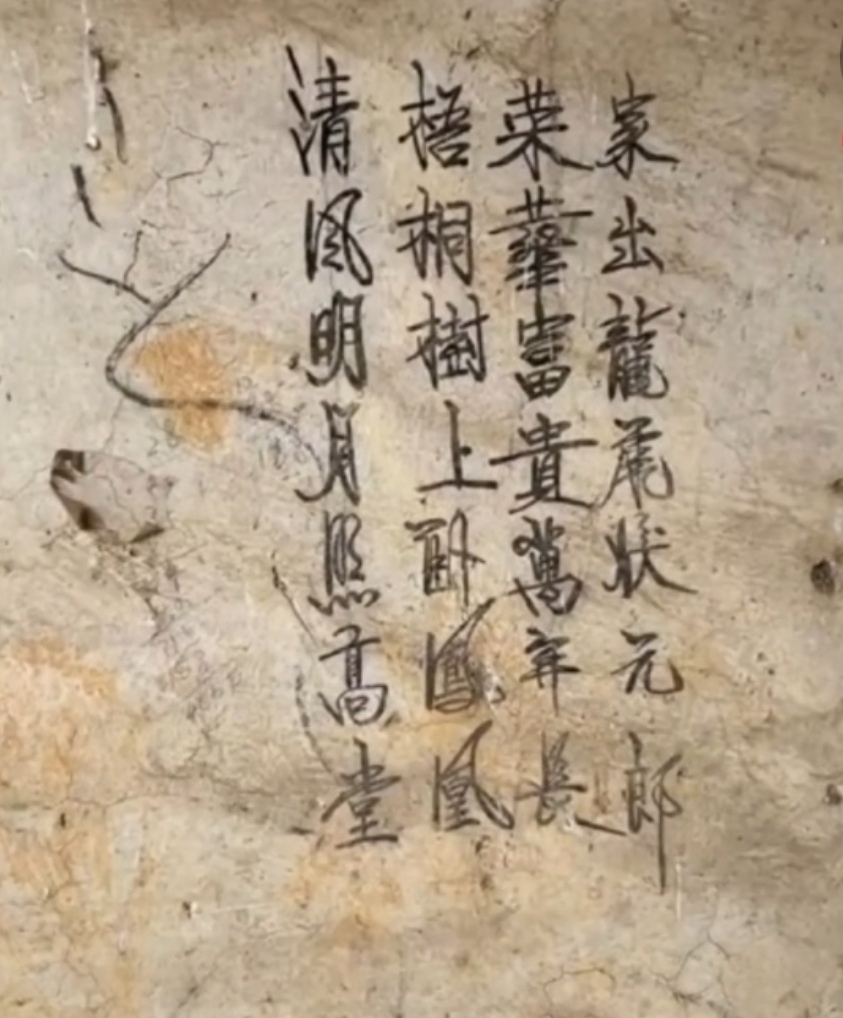 家出龍虎狀元郎
荣華富貴萬年長
梧桐樹上卧鳳凰
清風明月照高堂